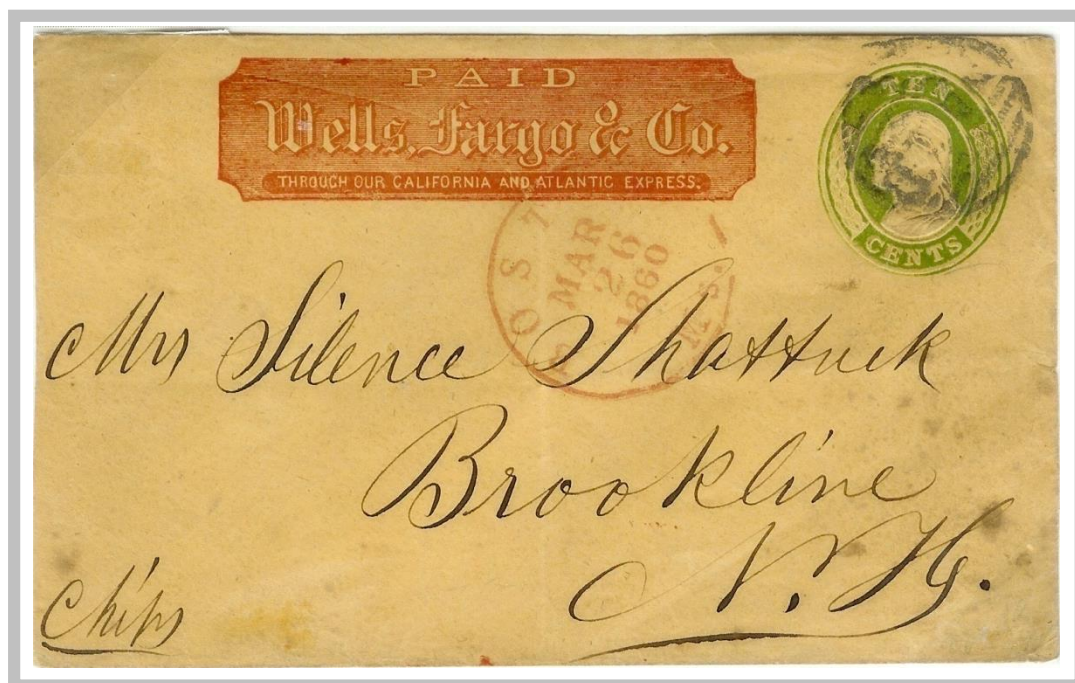 PAID
Wells, Fargo & Co.
THROUGH OUR CALIFORNIA AND ATLANTIC EXPRESS.
TEN
CENTS
POST
MAR
26
1860
Mrs Silence Shattuck
Brookline
N. H.